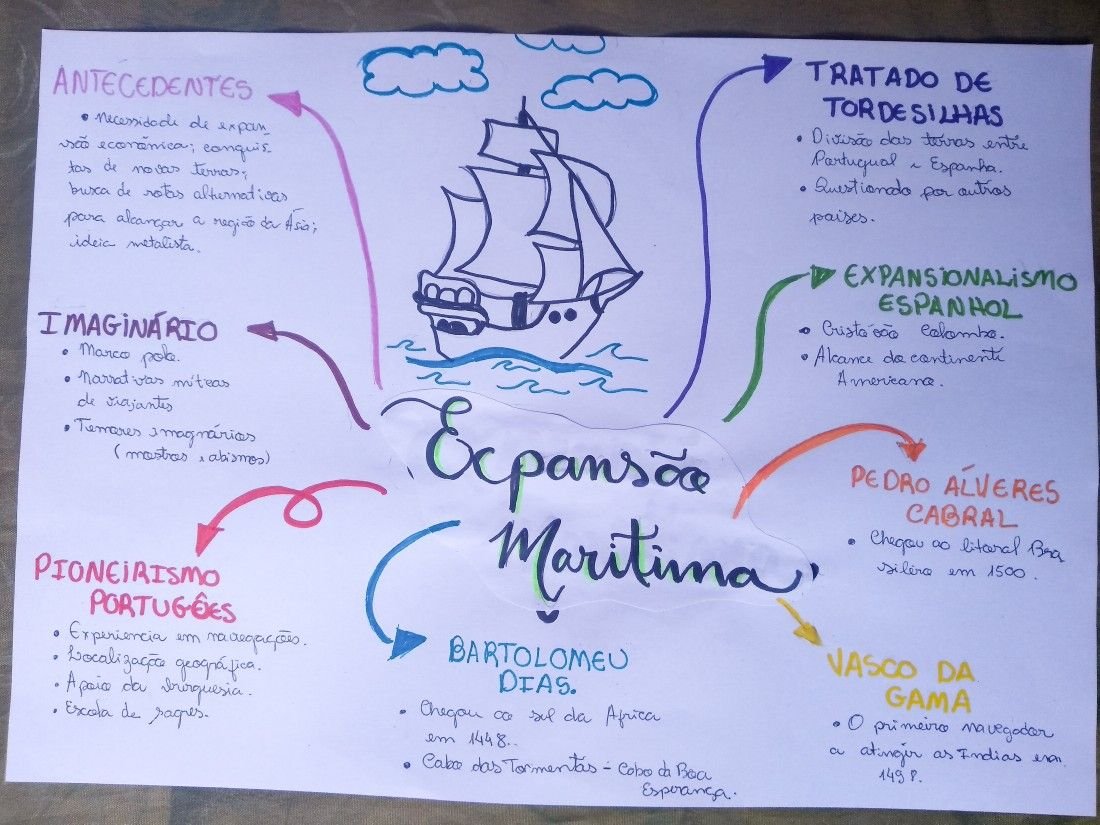 ANTECEDENTES
• Necessidade de expan
são econômica; conquis-
tas de novas terras;
busca de rotas alternativas
para alcançar a região da Ásia;
ideia metalista.
IMAGINÁRIO
• Marco polo.
• Narrativas míticas
de viajantes
• Temores imaginários
(mostros e abismos)
PIONEIRISMO
PORTUGÊES
• Experiencia em navegações.
• Localização geográfica.
• Apoio da burguesia.
• Escola de sagres.
Expansão
Maritima
BARTOLOMEU
DIAS.
• Chegou ao sul da Africa
em 1448.
• Cabo das Tormentas - Cabo da Boa
Esperança.
TRATADO DE
TORDESILHAS
• Divisão das terras entre
Portugual e Espanha.
• Questionado por outros
países.
EXPANSIONALISMO
ESPANHOL
• Cristóvão Colombo.
• Alcance do continente
Americano.
PEDRO ÁLVERES
CABRAL
• Chegou ao litoral Bra
sileiro em 1500.
VASCO DA
GAMA
• O primeiro navegador
a atingir as Indias em
1498.